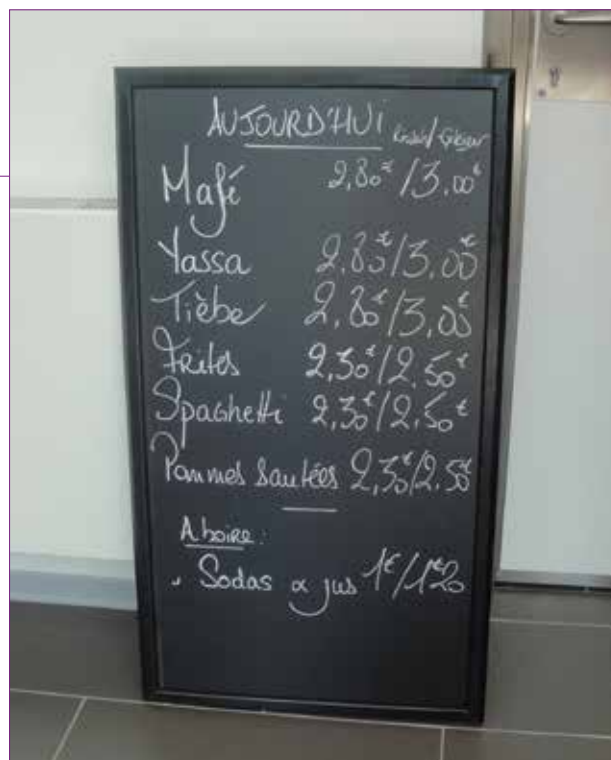 AUJOURD'HUI
Mafé 2,80€/3,00€
Yassa 2,80€/3,00€
Tièbe 2,80€/3,00€
Frites 2,30€/2,50€
Spaghetti 2,30€/2,50€
Pommes Sautées 2,30€/2,50€
A boire:
Sodas & jus 1€/1€20